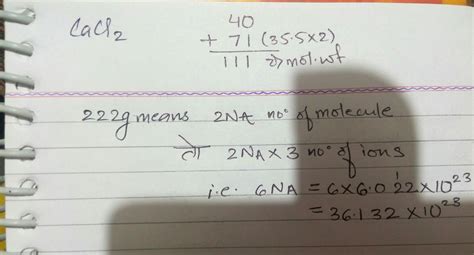 CaCl2
40
+ 71 (35.5×2)
111 → mol.wt
222g means 2NA no° of molecule
तो 2NA×3 no° of ions
i.e. 6NA = 6×6.022×10^23
= 36.132×10^23